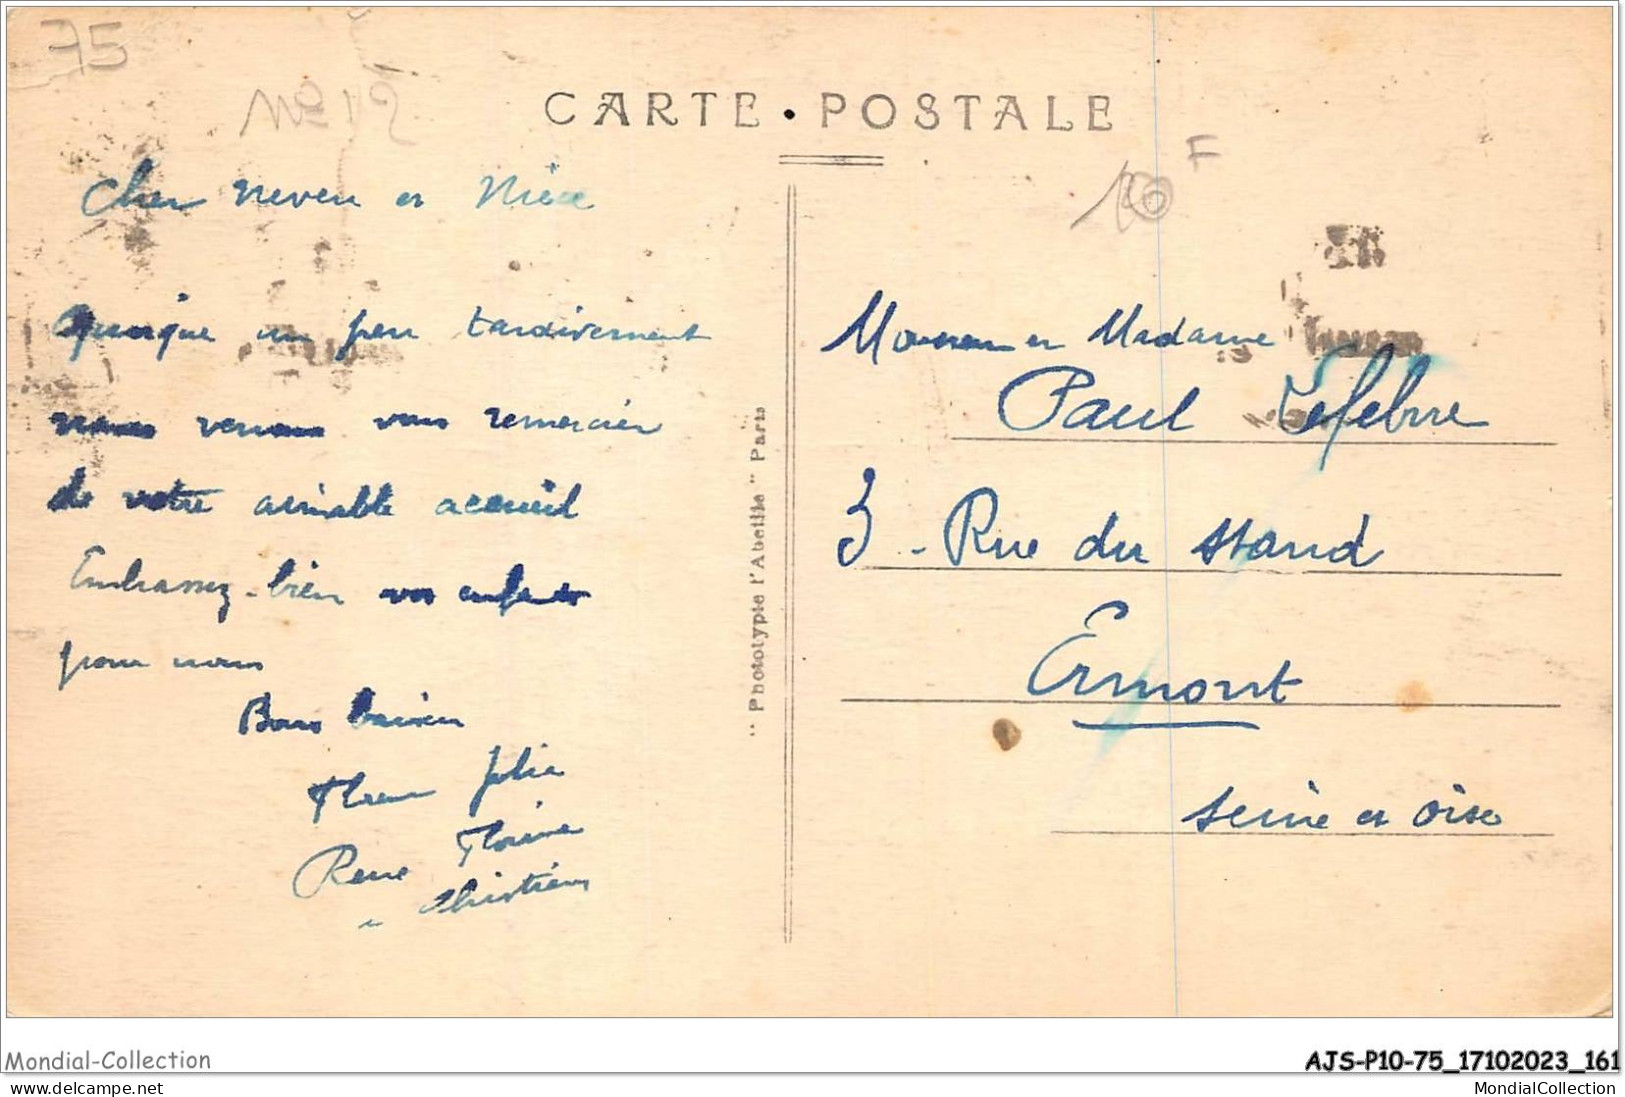 75
Nº 12
CARTE • POSTALE
10 F
Cher neveu et Nièce
Quoique un peu tardivement
nous venons vous remercier
de votre aimable accueil
Embrassez-bien vos enfants
pour nous
Bons baisers
Julia
Rene
Christiane
"Phototypie l'Abeille" Paris
Monsieur et Madame
Paul Lefebvre
3 - Rue du Stand
Ermont
Seine et Oise
Mondial-Collection
AJS-P10-75_17102023_161
www.delcampe.net
MondialCollection